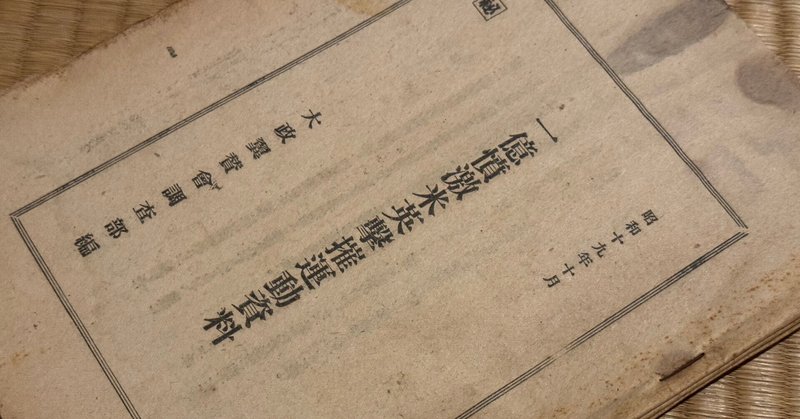 秘
昭和十九年十月
一億憤激米英擊摧運動資料
大政翼賛會調查部編